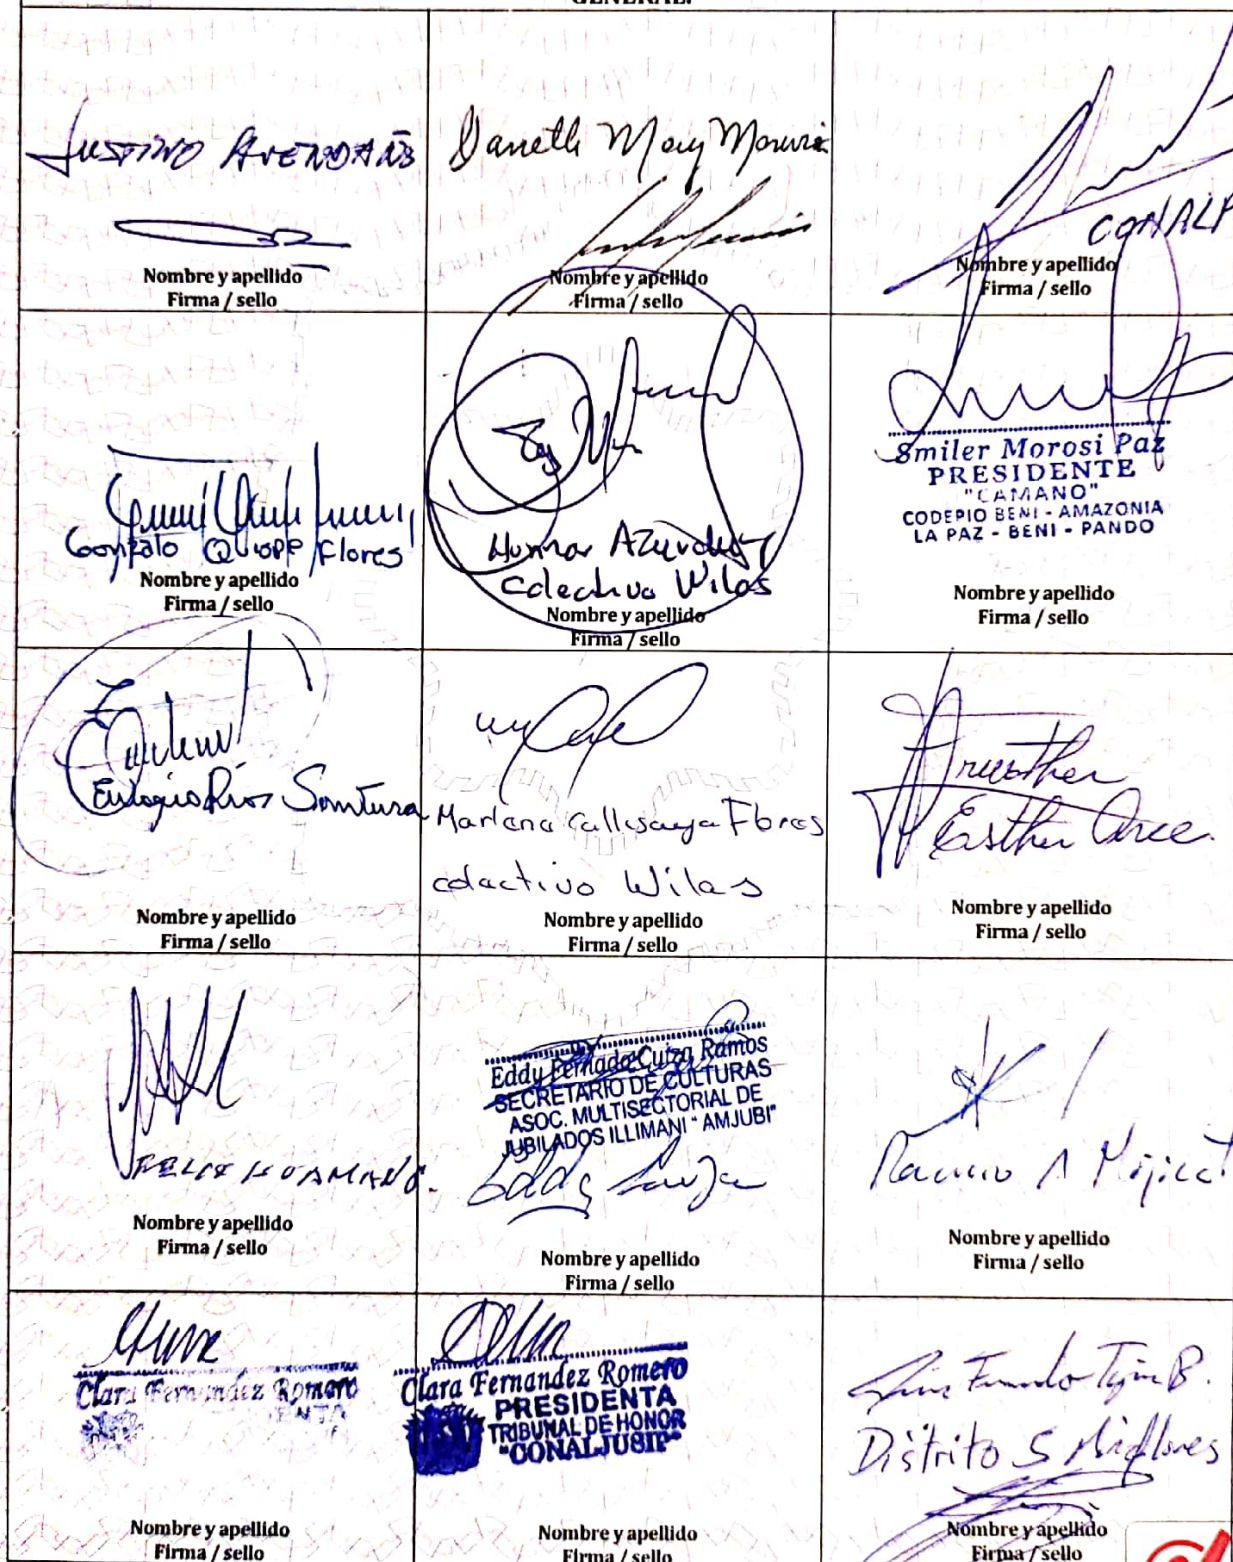 GENERAL.
JUSTINO AVENDAÑO
Nombre y apellido
Firma / sello
Nombre y apellido
Firma / sello
CONALP
Nombre y apellido
Firma / sello
Gonzalo Quispe Flores
Nombre y apellido
Firma / sello
Azurduy
Colectivo Wilas
Nombre y apellido
Firma / sello
Smiler Morosi Paz
PRESIDENTE
"CAMANO"
CODEPIO BENI - AMAZONIA
LA PAZ - BENI - PANDO
Nombre y apellido
Firma / sello
Eulogio Rios
Nombre y apellido
Firma / sello
Marlene Callisaya Flores
colactivo Wilas
Nombre y apellido
Firma / sello
Esther Arce.
Nombre y apellido
Firma / sello
FELIX HUAMAN
Nombre y apellido
Firma / sello
Eddy Fernado Cuiza Ramos
SECRETARIO DE CULTURAS
ASOC. MULTISECTORIAL DE
JUBILADOS ILLIMANI "AMJUBI"
Nombre y apellido
Firma / sello
Nombre y apellido
Firma / sello
Clara Fernandez Romero
Nombre y apellido
Firma / sello
Clara Fernandez Romero
PRESIDENTA
TRIBUNAL DE HONOR
"CONALJUSIP"
Nombre y apellido
Firma / sello
Distrito 5 Miraflores
Nombre y apellido
Firma / sello